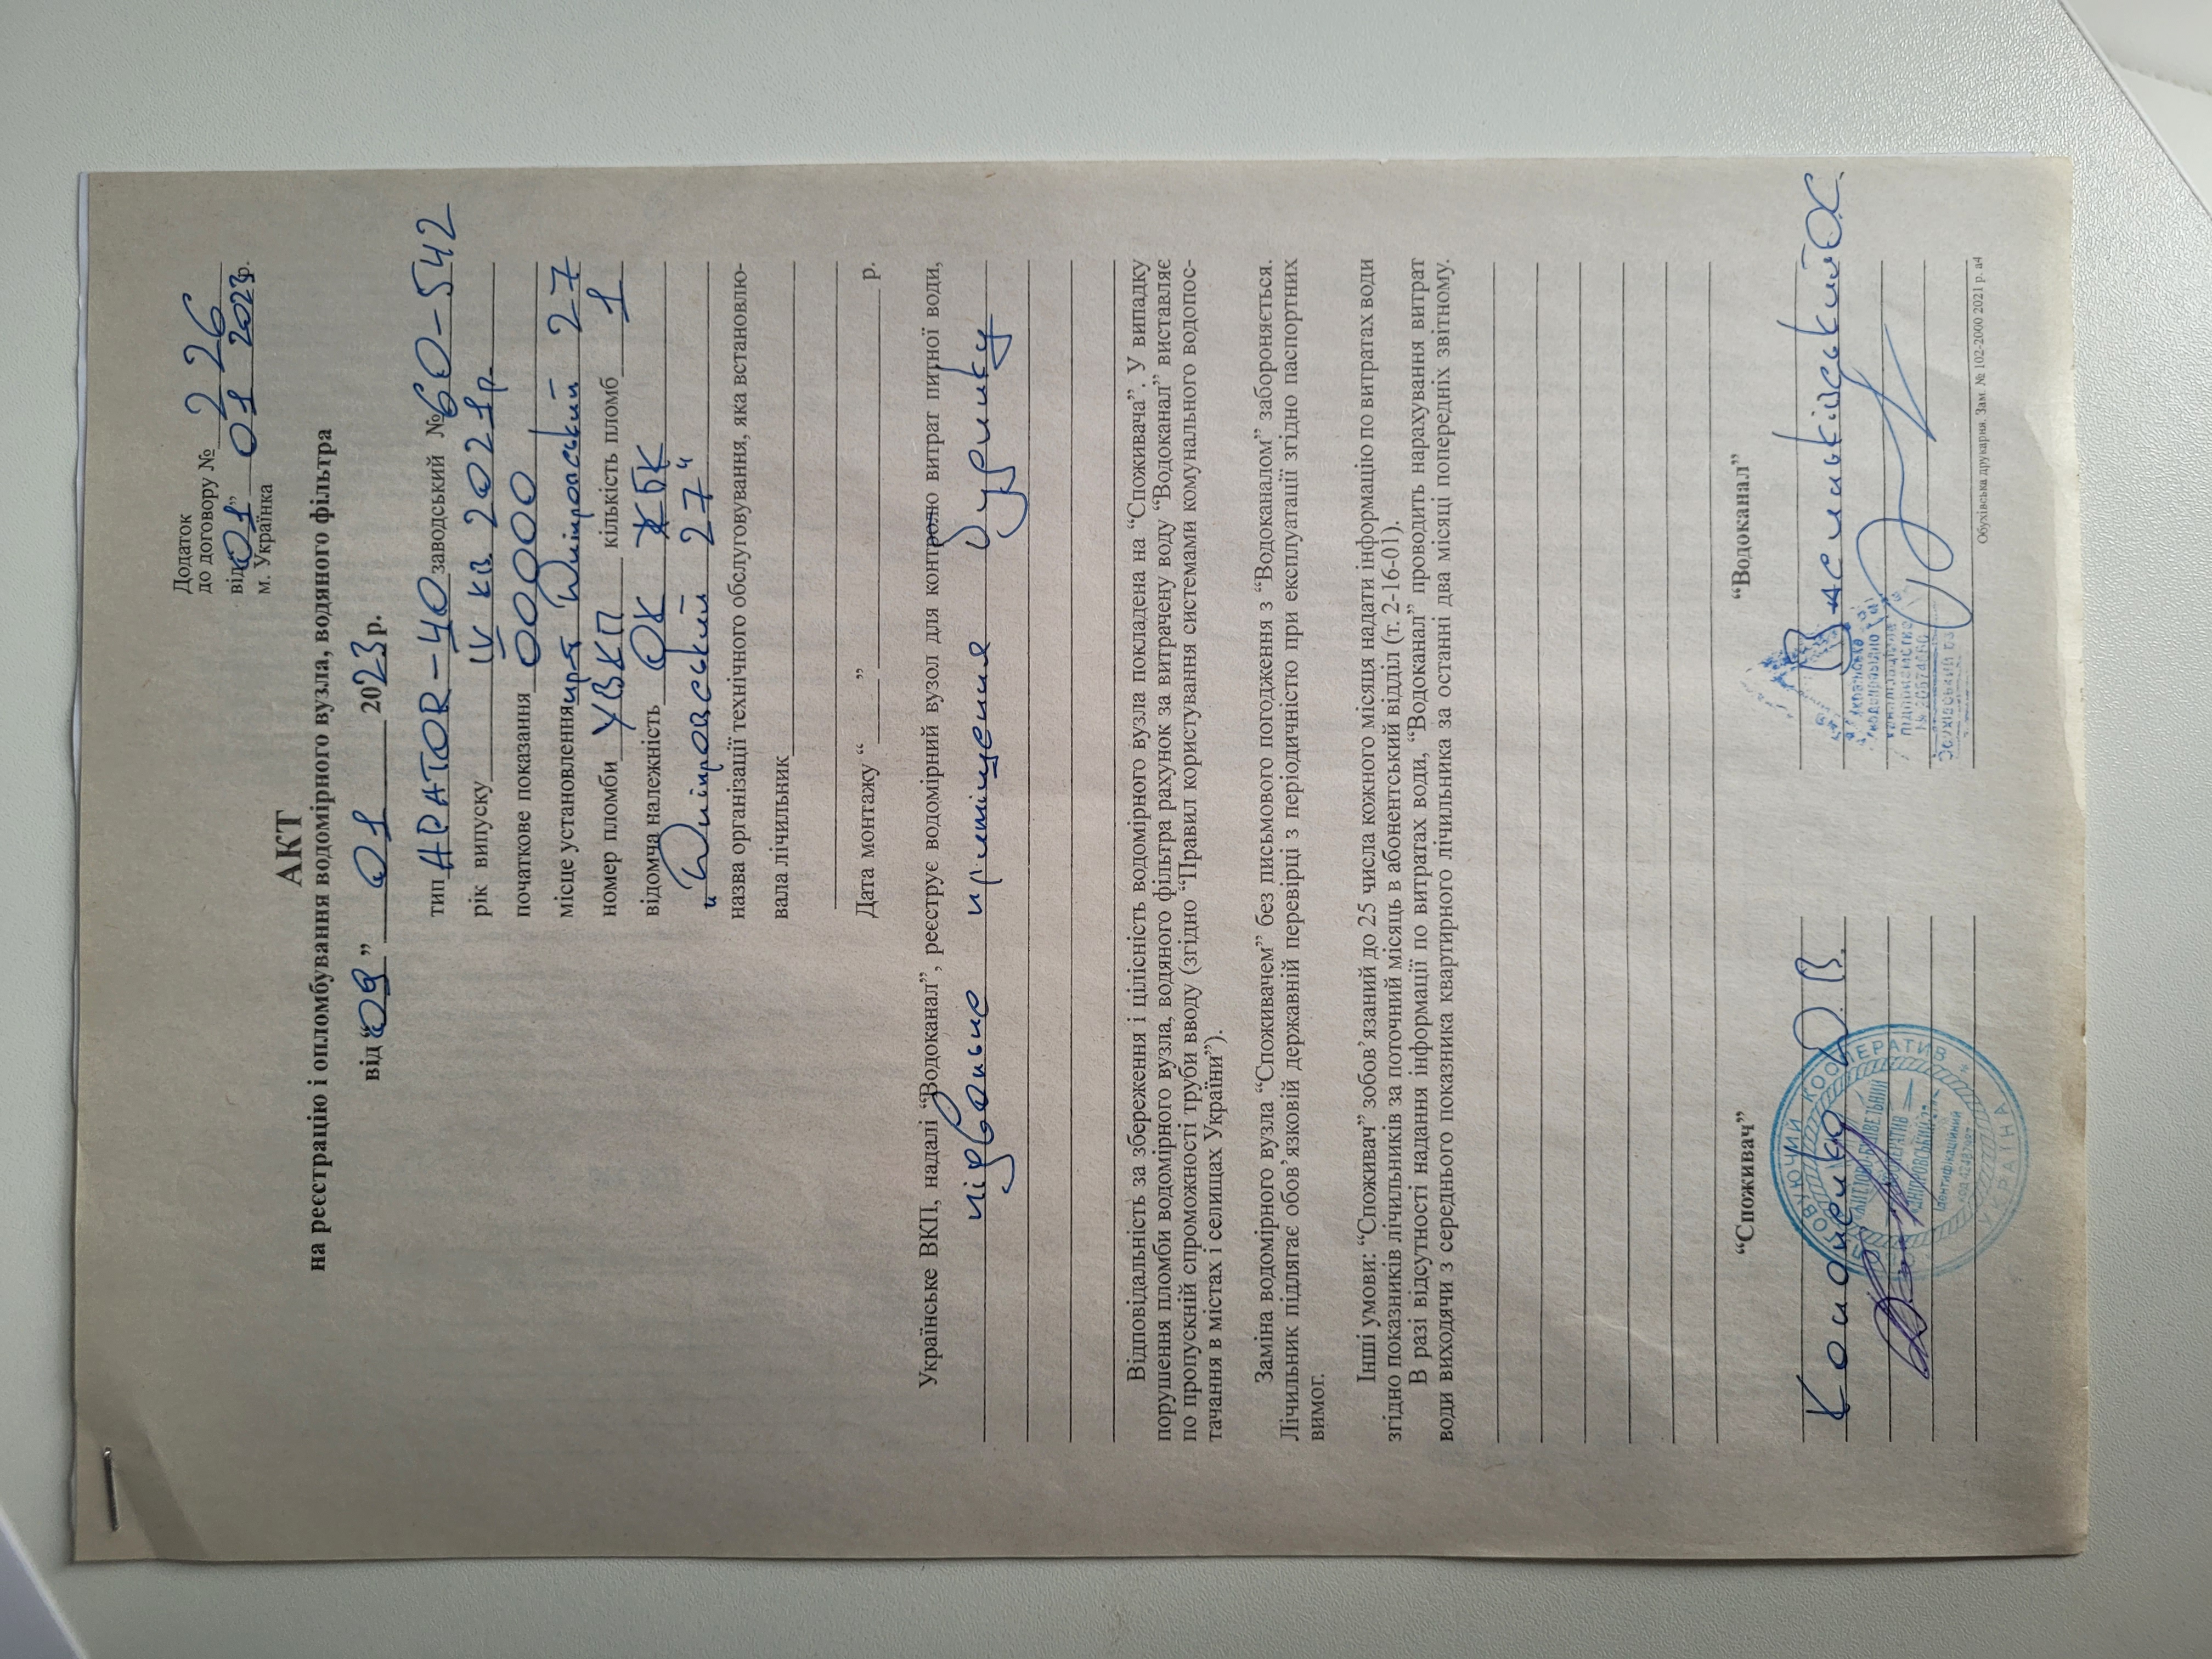 Додаток
до договору № 226
від “01” 01 2023р.
м. Українка
АКТ
на реєстрацію і опломбування водомірного вузла, водяного фільтра
від “09” 01 2023р.
тип APATOR-40 заводський № 60-542
рік випуску IV кв. 2021р
початкове показання 000000
місце установлення Дніпровський 27
номер пломби УВКП кількість пломб 1
відомча належність ОК ЖБК
„Дніпровський 27“
назва організації технічного обслуговування, яка встановлю-
вала лічильник
Дата монтажу “ ” р.
Українське ВКП, надалі “Водоканал”, реєструє водомірний вузол для контролю витрат питної води,
підвальне приміщення будинку
Відповідальність за збереження і цілісність водомірного вузла покладена на “Споживача”. У випадку
порушення пломби водомірного вузла, водяного фільтра рахунок за витрачену воду “Водоканал” виставляє
по пропускній спроможності труби вводу (згідно “Правил користування системами комунального водопос-
тачання в містах і селищах України”).
Заміна водомірного вузла “Споживачем” без письмового погодження з “Водоканалом” забороняється.
Лічильник підлягає обов’язковій державній перевірці з періодичністю при експлуатації згідно паспортних
вимог.
Інші умови: “Споживач” зобов’язаний до 25 числа кожного місяця надати інформацію по витратах води
згідно показників лічильників за поточний місяць в абонентський відділ (т. 2-16-01).
В разі відсутності надання інформації по витратах води, “Водоканал” проводить нарахування витрат
води виходячи з середнього показника квартирного лічильника за останні два місяці попередніх звітному.
“Споживач” “Водоканал”
КООПЕРАТИВ
УКРАЇНА
Обухівська друкарня. Зам. № 102-2000 2021 р. а4